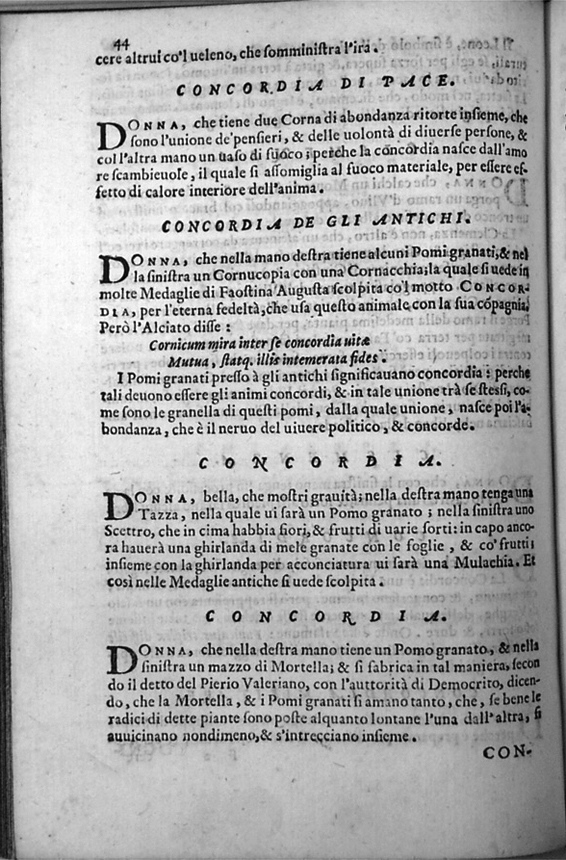 44
cere altrui co'l ueleno, che somministra l'ira.
CONCORDIA DI PACE.
DONNA, che tiene due Corna di abondanza ritorte insieme, che
sono l'unione de'pensieri, & delle uolontà di diuerse persone, &
col l'altra mano un uaso di fuoco; perche la concordia nasce dall'amo
re scambieuole, il quale si assomiglia al fuoco materiale, per essere ef-
fetto di calore interiore dell'anima.
CONCORDIA DE GLI ANTICHI.
DONNA, che nella mano destra tiene alcuni Pomi granati; & nel
la sinistra un Cornucopia con una Cornacchia; la quale si uede in
molte Medaglie di Faostina Augusta scolpita co'l motto CONCOR-
DIA, per l'eterna fedeltà, che usa questo animale con la sua cōpagnia,
Però l'Alciato disse:
Cornicum mira inter se concordia uitæ
Mutua, statq. illis intemerata fides.
I Pomi granati presso à gli antichi significauano concordia: perche
tali deuono essere gli animi concordi, & in tale unione trà se stessi, co-
me sono le granella di questi pomi, dalla quale unione, nasce poi l'a-
bondanza, che è il neruo del uiuere politico, & concorde.
CONCORDIA.
DONNA, bella, che mostri grauità; nella destra mano tenga una
Tazza, nella quale ui sarà un Pomo granato; nella sinistra uno
Scettro, che in cima habbia fiori, & frutti di uarie sorti: in capo anco-
ra hauerà una ghirlanda di mele granate con le foglie, & co' frutti;
insieme con la ghirlanda per acconciatura ui sarà una Mulachia. Et
così nelle Medaglie antiche si uede scolpita.
CONCORDIA.
DONNA, che nella destra mano tiene un Pomo granato, & nella
sinistra un mazzo di Mortella; & si fabrica in tal maniera, secon
do il detto del Pierio Valeriano, con l'auttorità di Democrito, dicen-
do, che la Mortella, & i Pomi granati si amano tanto, che, se bene le
radici di dette piante sono poste alquanto lontane l'una dall'altra, si
auuicinano nondimeno, & s'intrecciano insieme.
CON-